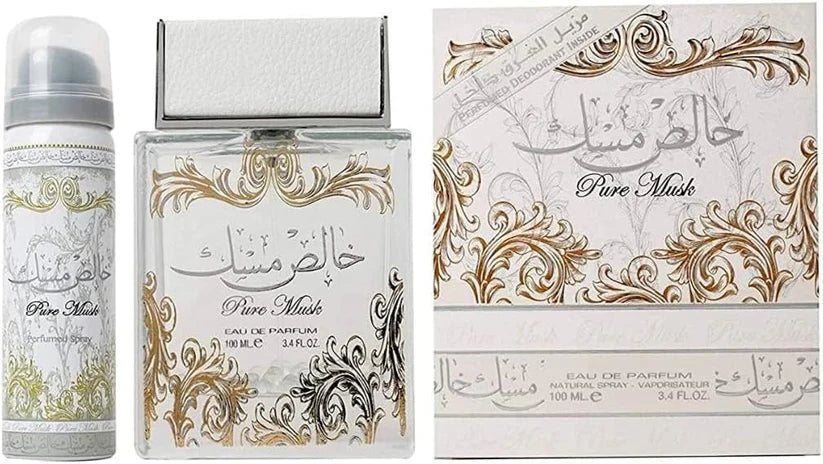 خالص مسك
Pure Musk
Perfumed Spray
Pure Musk
خالص مسك
Pure Musk
EAU DE PARFUM
100 ML.e 3.4 FL.OZ.
مزيل العرق داخل
PERFUMED DEODORANT INSIDE
خالص مسك
Pure Musk
Pure Musk Pure Musk Pure Musk
مسك خالص
EAU DE PARFUM
NATURAL SPRAY - VAPORISATEUR
100 ML.e 3.4 FL.OZ.
خالص مسك